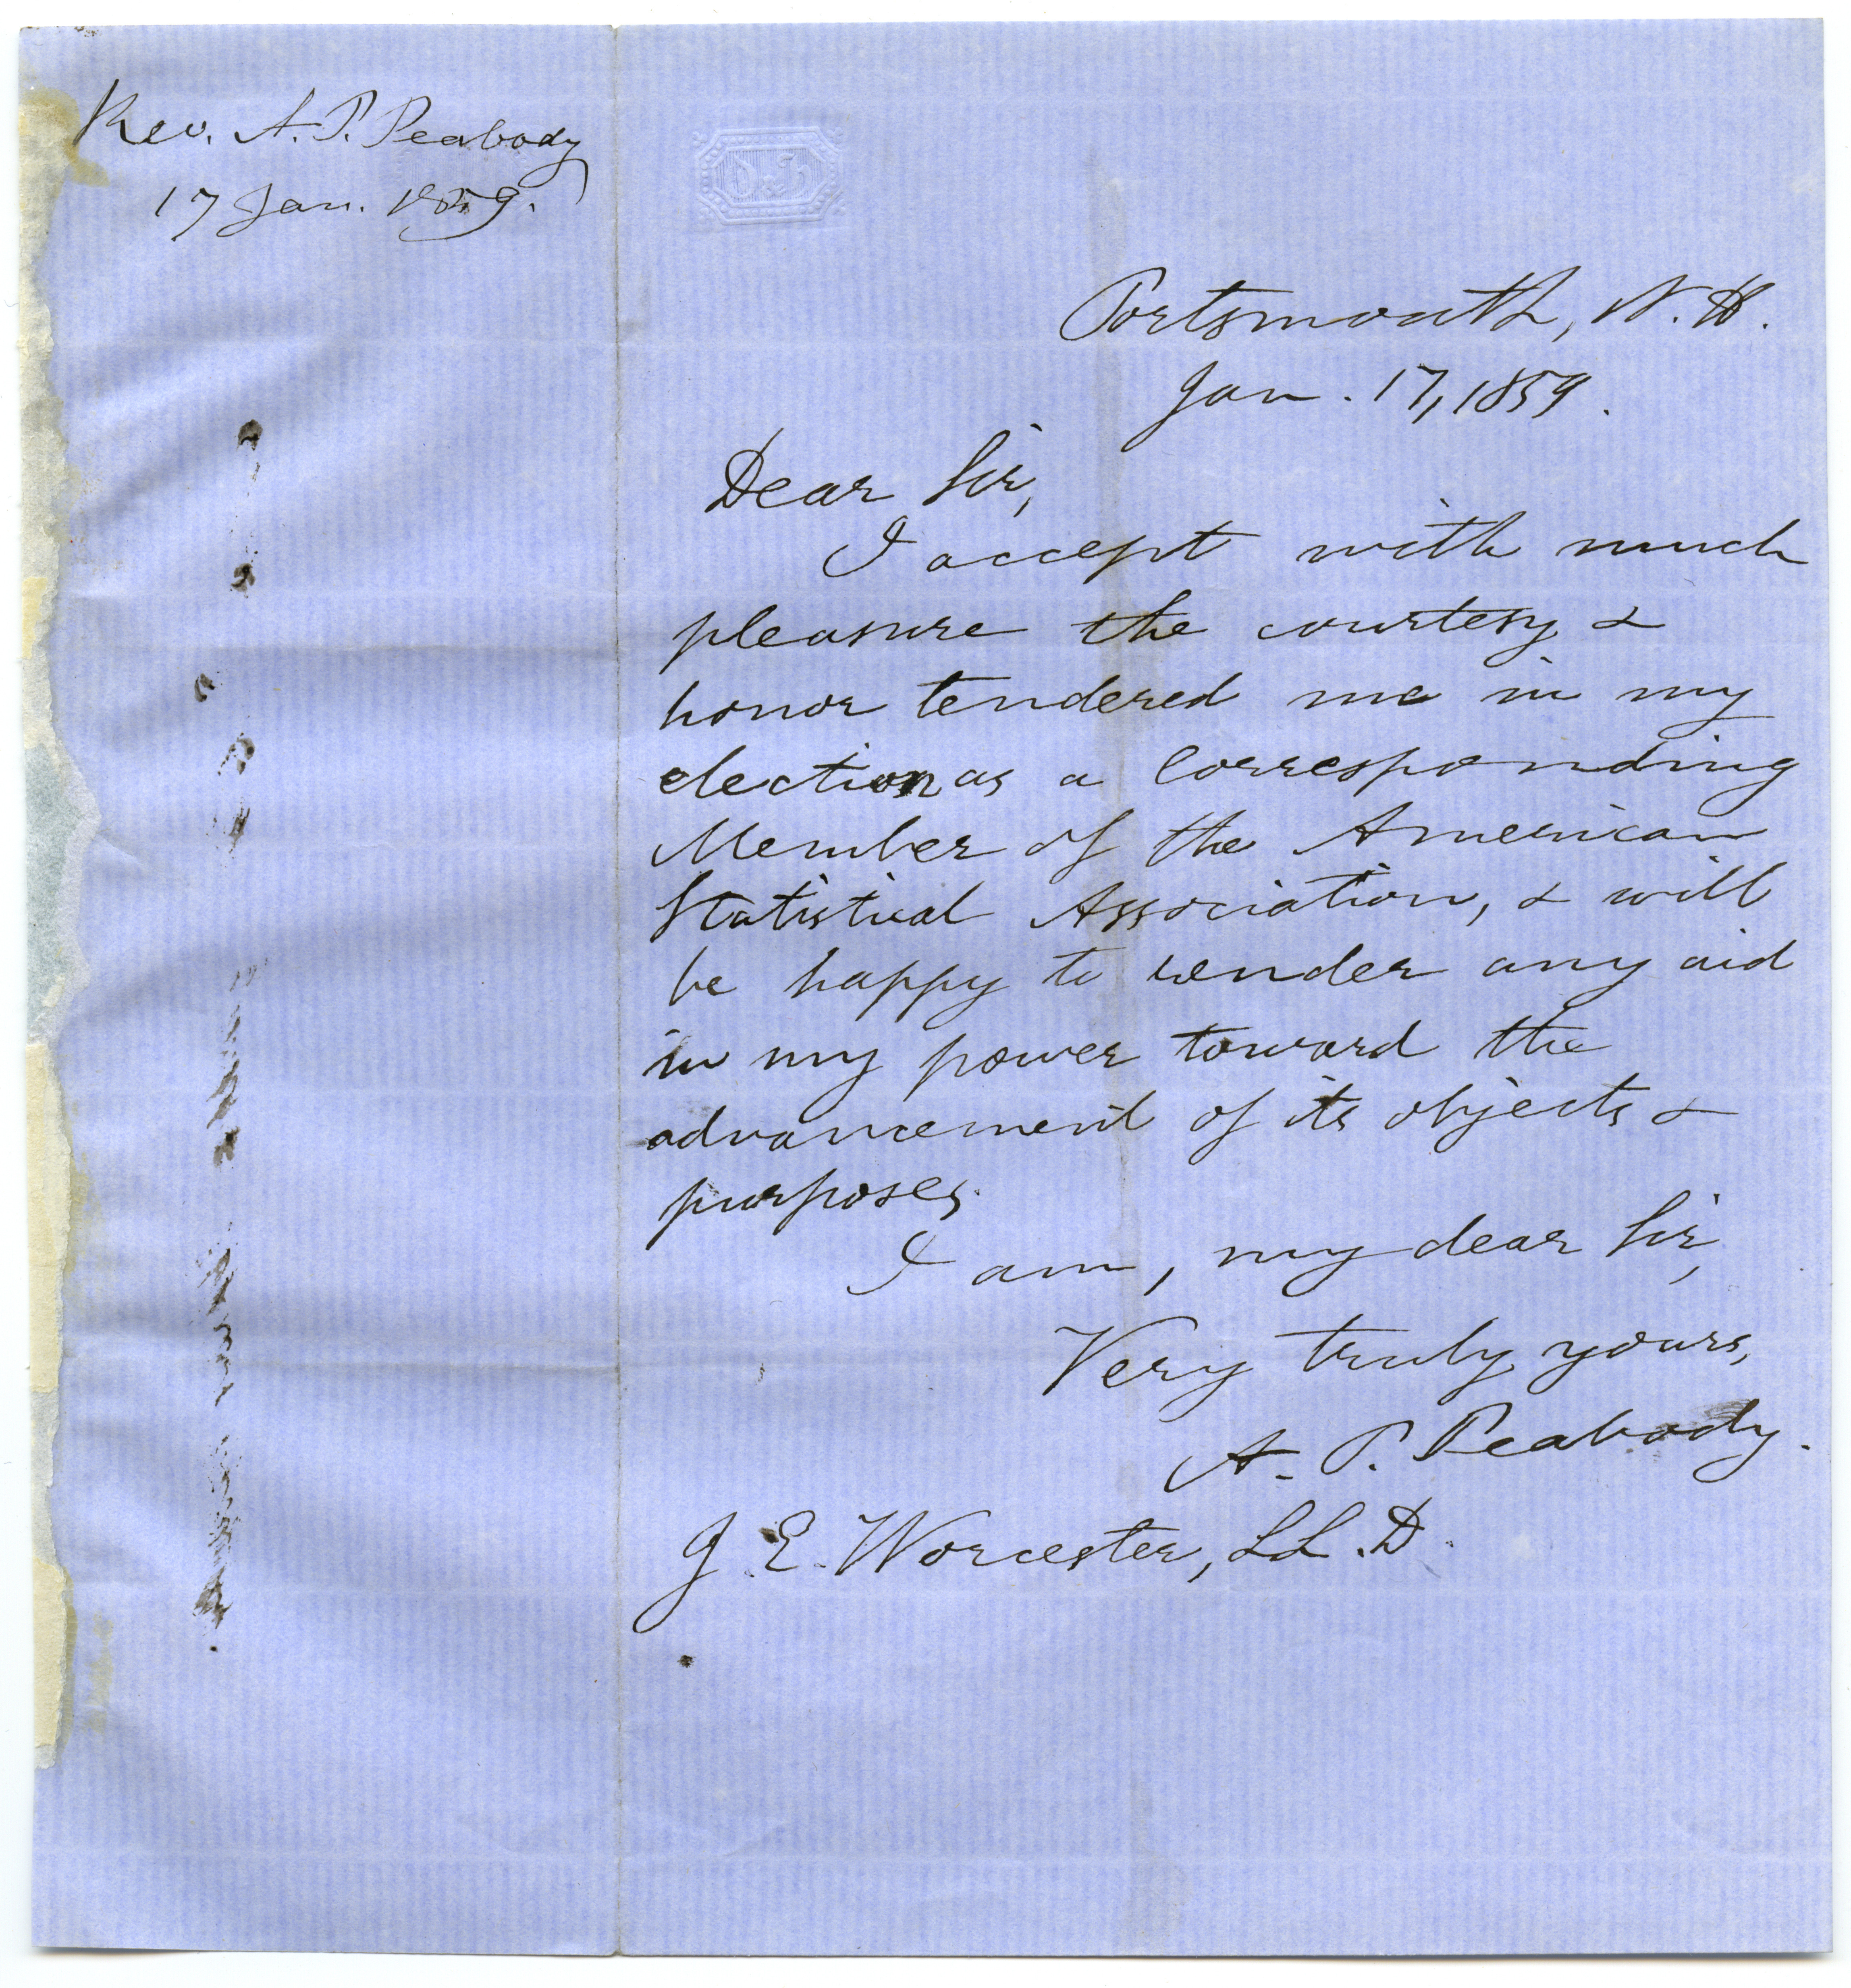 Rev. A. P. Peabody
17 Jan. 1859.
Portsmouth, N. H.
Jan. 17, 1859.
Dear Sir,
I accept with much
pleasure the courtesy &
honor tendered me in my
election as a Corresponding
Member of the American
Statistical Association, & will
be happy to render any aid
in my power toward the
advancement of its objects &
purposes.
I am, my dear Sir,
Very truly yours,
A. P. Peabody.
J. E. Worcester, LL. D.